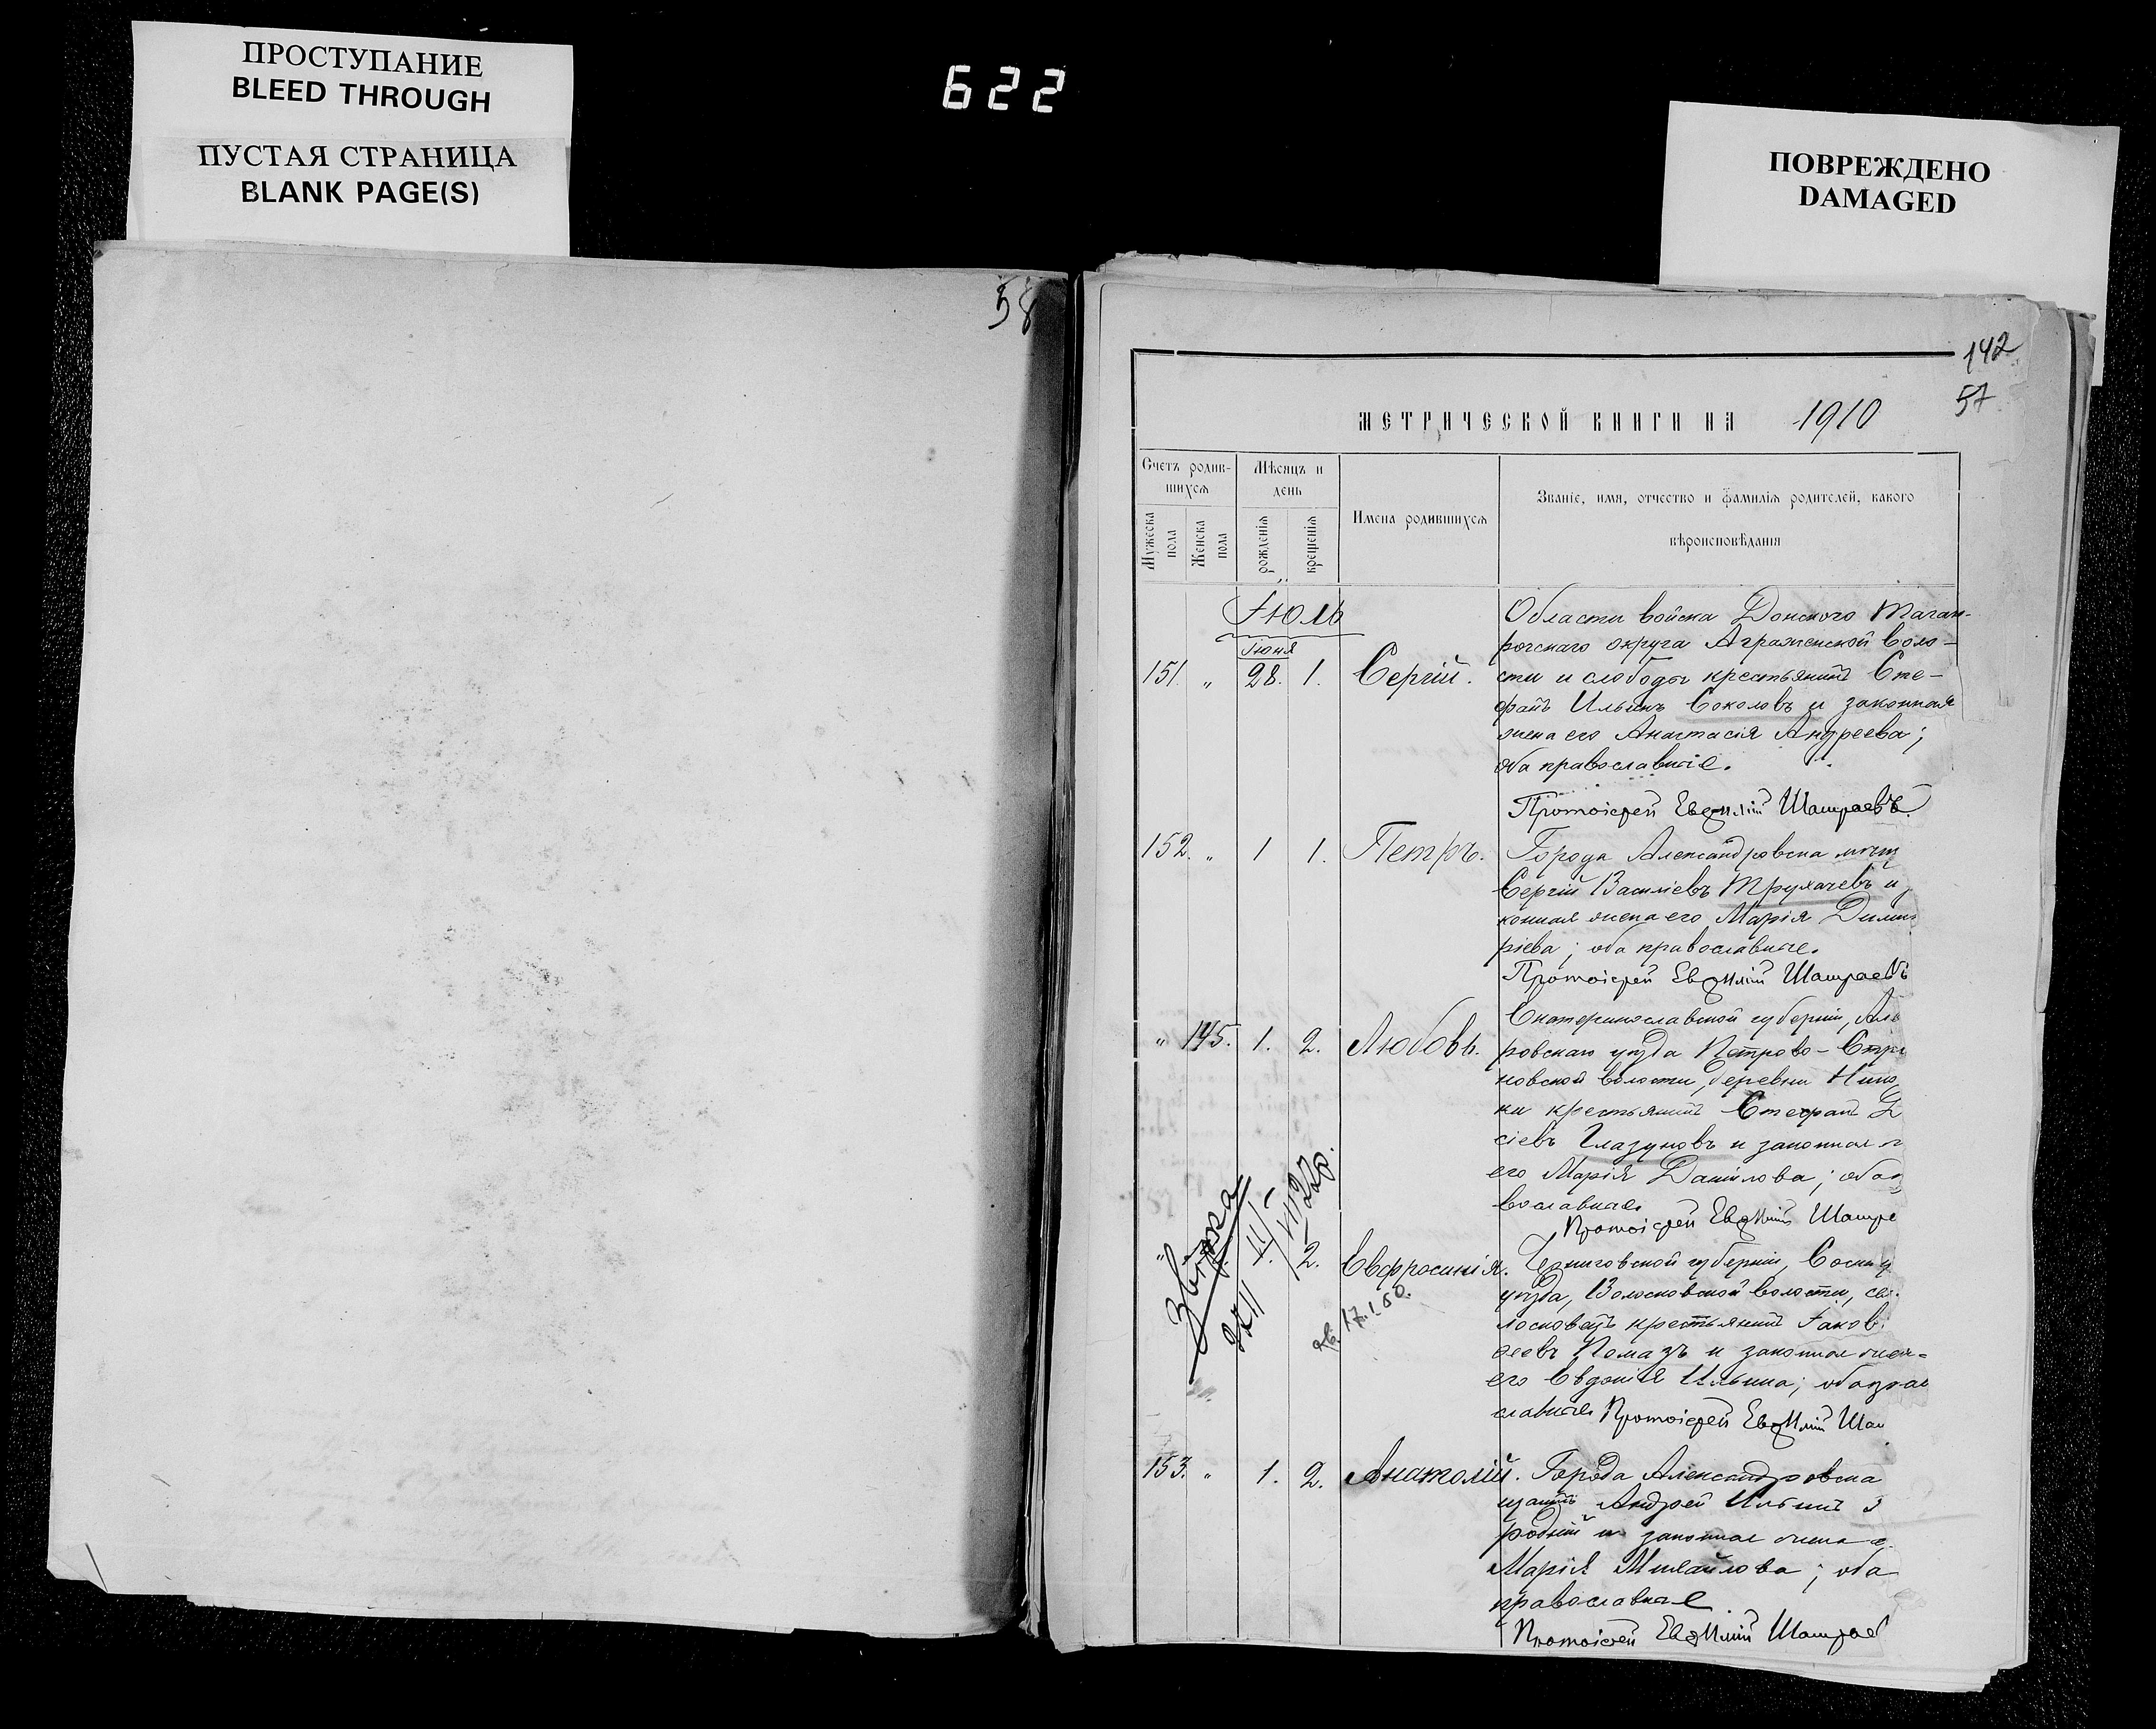 ПРОСТУПАНИЕ
BLEED THROUGH
ПУСТАЯ СТРАНИЦА
BLANK PAGE(S)
622
ПОВРЕЖДЕНО
DAMAGED
58
142
57
МЕТРИЧЕСКОЙ КНИГИ НА 1910
Счетъ родив-
шихся
Мужеска
пола
Женска
пола
Мѣсяцъ и
день
рожденія
крещенія
Имена родившихся
Званіе, имя, отчество и фамилія родителей, какого
вѣроисповѣданія
Іюль
Іюня
151. " 28. 1. Сергій.
Области войска Донского Таган-
рогскаго округа Аграфенской воло-
сти и слободы крестьянинъ Сте-
фанъ Ильинъ Соколовъ и законная
жена его Анастасія Андреева;
оба православные.
Протоіерей Евѳимій
152. " 1 1. Петръ.
Города Александровска
Сергій Василіевъ Трухачевъ и
конная жена его Марія Дими
ріева; оба православные.
Протоіерей Евѳимій
" 145. 1. 2. Любовь.
Екатеринославской губерніи,
ровскаго уѣзда Петрово-
новской волости, деревни
ки крестьянинъ Стефанъ
сіевъ Глазуновъ и законная
его Марія Данилова; оба
вославные
Протоіерей Евѳимій
" 2. Евфросинія.
Черниговской губерніи, Сосн
уѣзда, Волосковской волости,
лосковецъ крестьянинъ Іаков
Помазъ и законная жен
его Евдокія Ильина; оба
славные Протоіерей Евѳимій
17.1.50.
153. " 1. 2. Анатолій.
Города Александровска
щанинъ Андрей Ильинъ
родній и законная жена
Марія Михайлова; оба
православные
Протоіерей Евѳимій